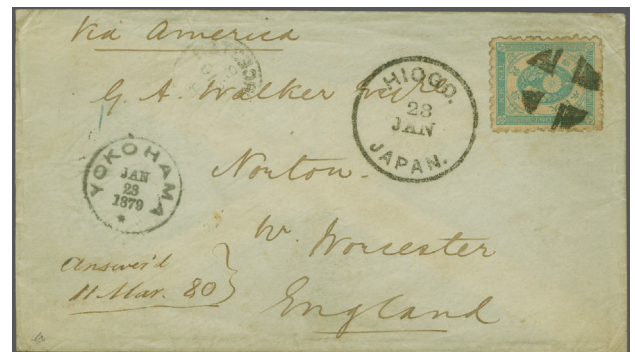 Via America
HIOGO.
23
JAN
JAPAN.
G. A. Walker
Norton
YOKOHAMA
JAN
23
1879
Nr. Worcester
Answer'd
11 Mar. 80
England